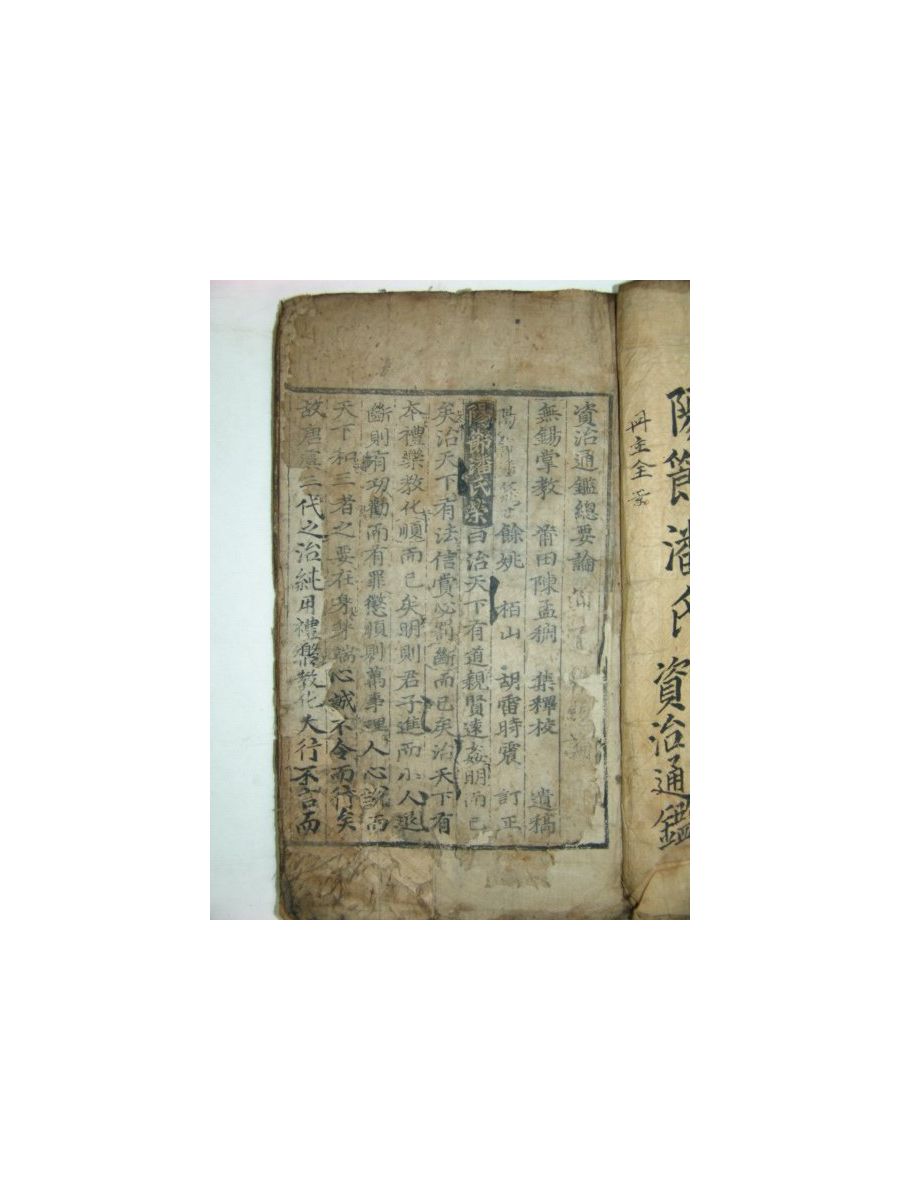 陽節潘氏資治通鑑
冊主全
資治通鑑總要論
無錫掌教 莆田陳孟稠 集釋校 遺稿
陽 餘姚 栢山 胡雷時震 訂正
陽節潘氏榮曰治天下有道親賢遠姦明而已
矣治天下有法信賞必罰斷而已矣治天下有
本禮樂教化順而已矣明則君子進而小人退
斷則有功勸而有罪懲順則萬事理人心說而
天下和三者之要在身身端心誠不令而行矣
故唐虞三代之治純用禮樂教化大行不言而